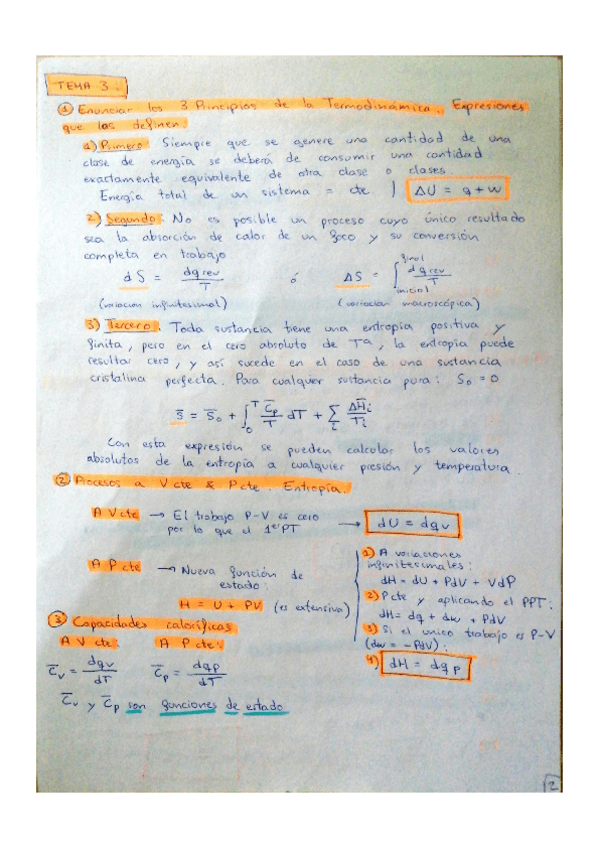 TEMA 3.
1) Enunciar los 3 Principios de la Termodinámica. Expresiones
que los definen.
1) Primero: Siempre que se genere una cantidad de una
clase de energía se deberá de consumir una cantidad
exactamente equivalente de otra clase o clases.
Energía total de un sistema = cte. | ΔU = q + w
2) Segundo: No es posible un proceso cuyo único resultado
sea la absorción de calor de un foco y su conversión
completa en trabajo
dS = dqrev/T ó ΔS = ∫inicial^final dqrev/T
(variación infinitesimal) (variación macroscópica)
3) Tercero: Toda sustancia tiene una entropía positiva y
finita, pero en el cero absoluto de Tª, la entropía puede
resultar cero, y así sucede en el caso de una sustancia
cristalina perfecta. Para cualquier sustancia pura: S₀ = 0
S̄ = S̄₀ + ∫₀^T C̄p/T dT + Σi ΔH̄i/Ti
Con esta expresión se pueden calcular los valores
absolutos de la entropía a cualquier presión y temperatura.
2) Procesos a V cte & P cte. Entropía.
A V cte → El trabajo P-V es cero
por lo que el 1er PT → dU = dqv
A P cte → Nueva función de
estado:
H = U + PV (es extensiva)
1) A variaciones
infinitesimales:
dH = dU + PdV + VdP
2) P cte y aplicando el PPT:
dH = dq + dw + PdV
3) Si el unico trabajo es P-V
(dw = -PdV):
4) dH = dqp
3) Capacidades caloríficas
A V cte: A P cte:
C̄v = dqv/dT C̄p = dqp/dT
C̄v y C̄p son funciones de estado
2